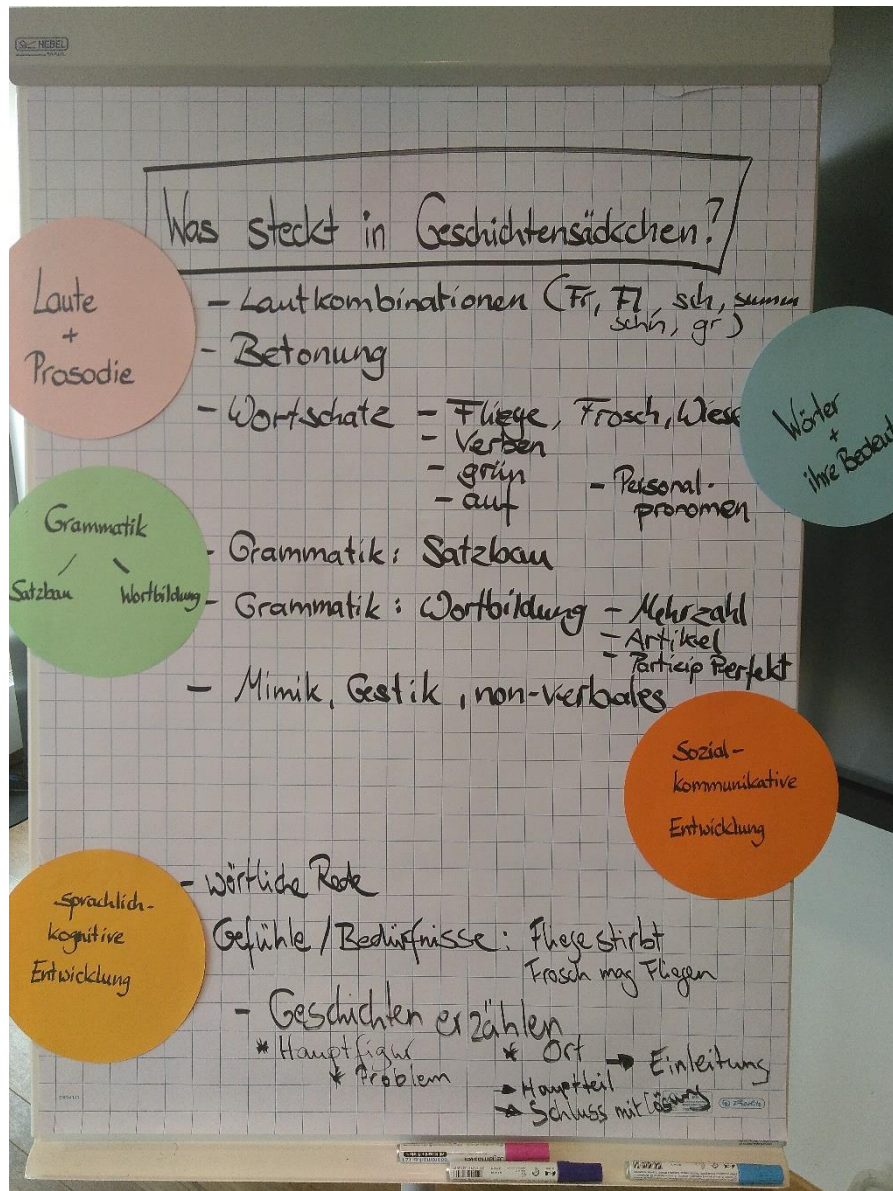 NEBEL
Was steckt in Geschichtensäckchen?
Laute
+
Prosodie
- Lautkombinationen (Fr, Fl, sch, summ
schn, gr)
- Betonung
- Wortschatz - Fliege, Frosch, Wiese
- Verben
- grün
- auf
- Personal-
pronomen
Wörter
+
ihre Bedeut
Grammatik
Satzbau Wortbildung
- Grammatik: Satzbau
- Grammatik: Wortbildung - Mehrzahl
- Artikel
- Particip Perfekt
- Mimik, Gestik, non-verbales
Sozial-
kommunikative
Entwicklung
sprachlich-
kognitive
Entwicklung
- wörtliche Rede
Gefühle / Bedürfnisse: Fliege stirbt
Frosch mag Fliegen
- Geschichten erzählen
* Hauptfigur
* Problem
* Ort → Einleitung
→ Hauptteil
→ Schluss mit Lösung